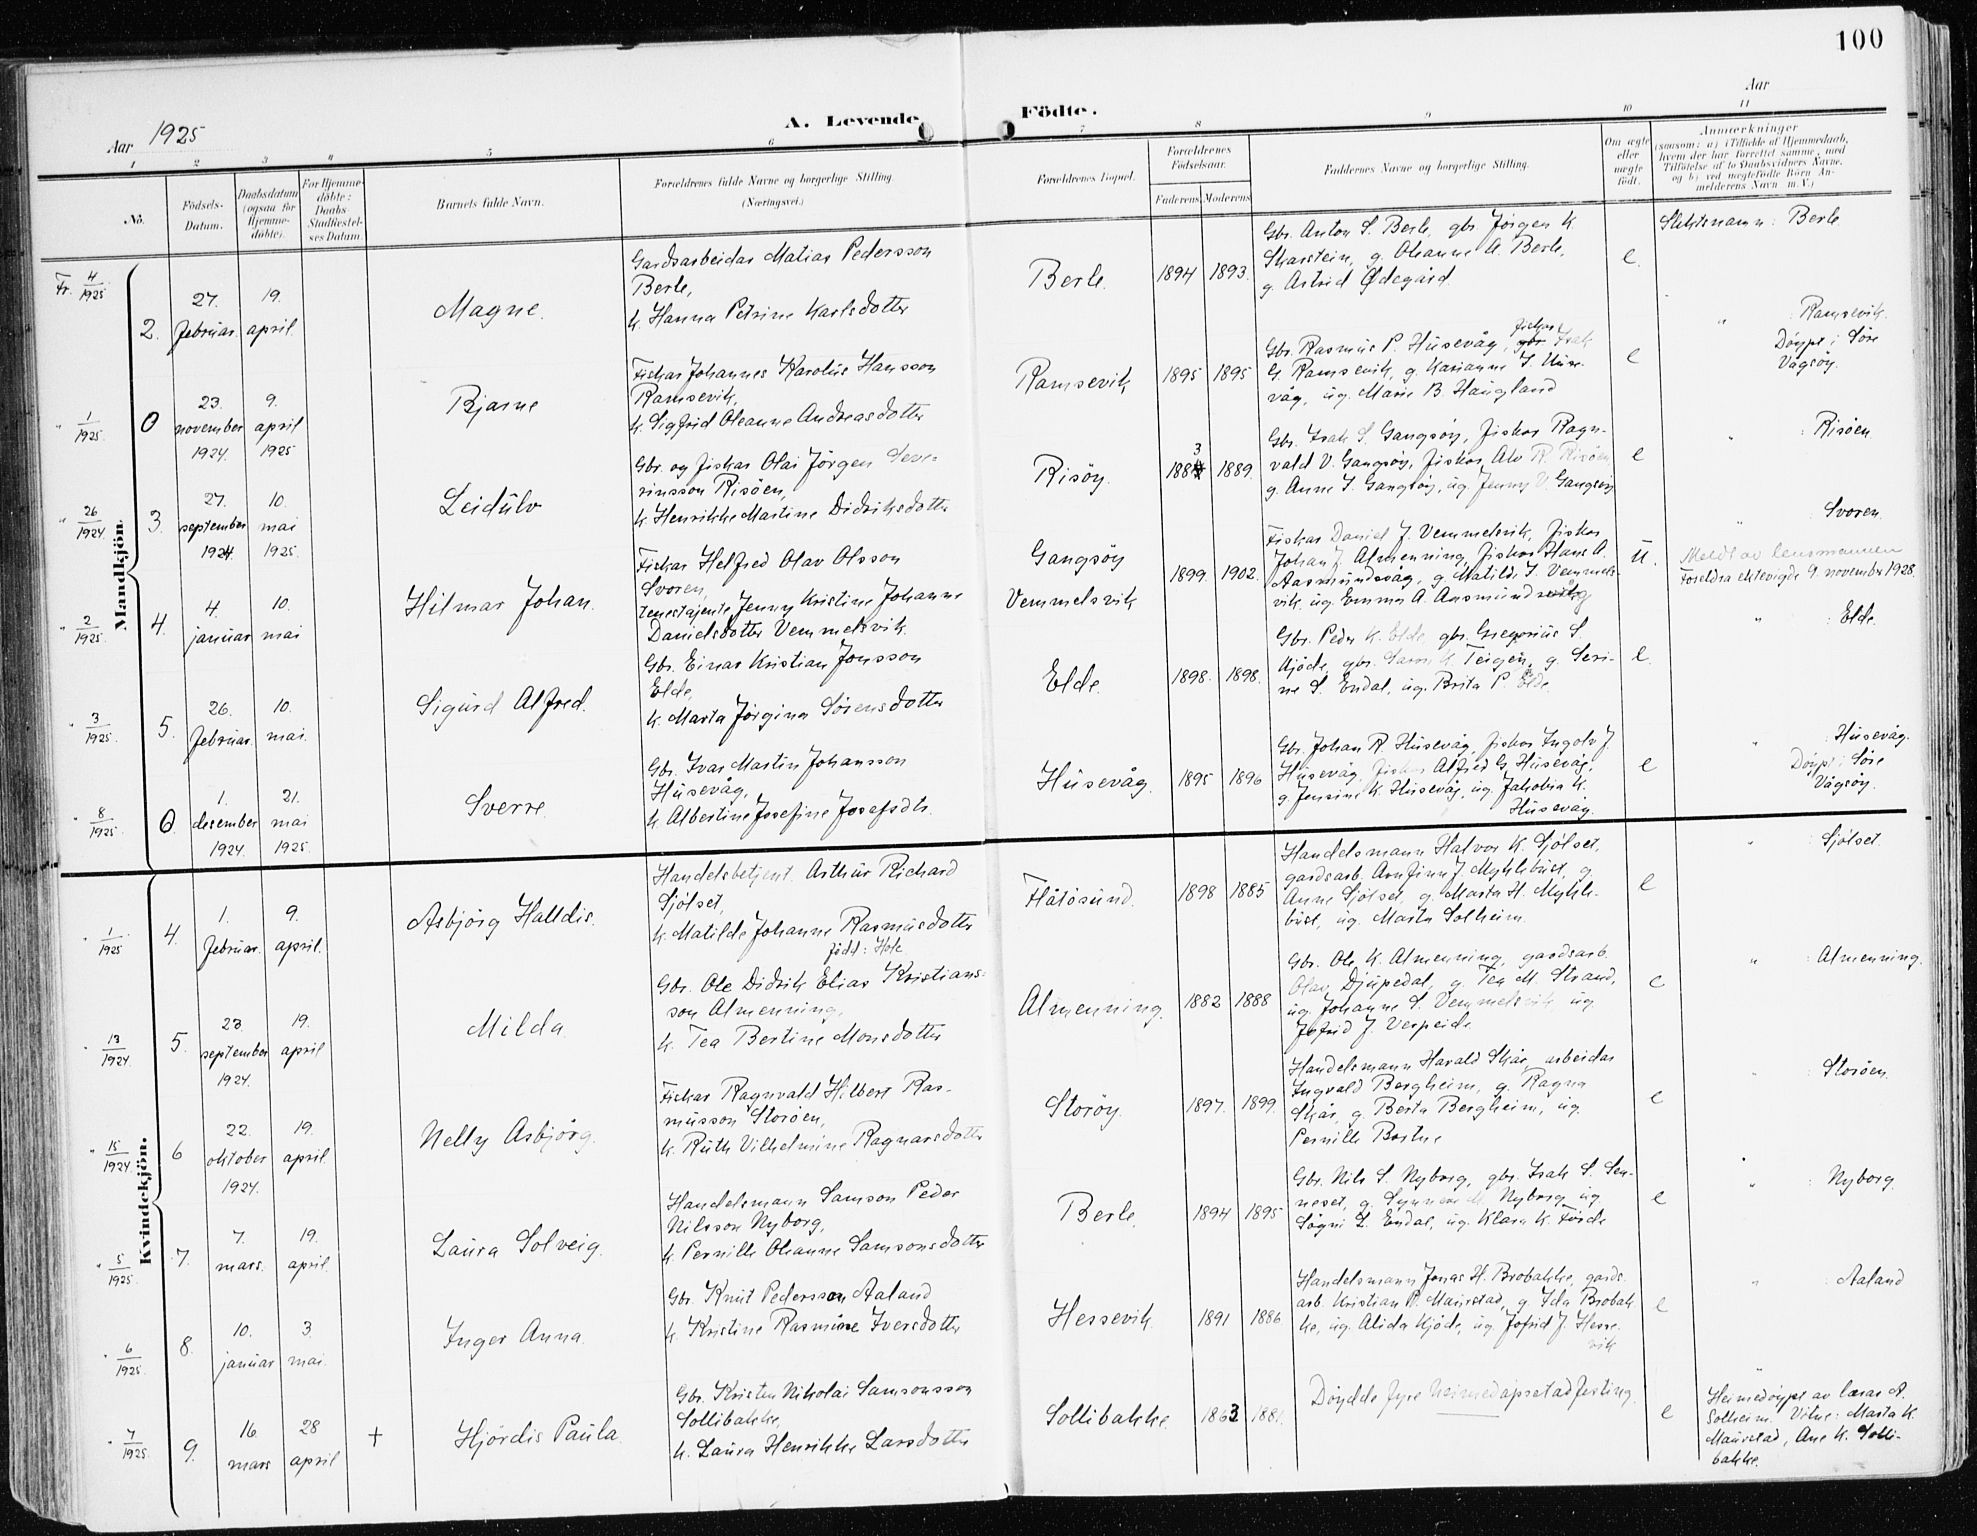 100
Aar 1925
A. Levende Födte.
Aar
1 2 3 4 5 6 7 8 9 10 11
No.
Födsels-Datum.
Daabsdatum (ogsaa for Hjemme-döbte).
For Hjemme-döbte: Daabs Stadfæstel-ses Datum.
Barnets fulde Navn.
Forældrenes fulde Navne og borgerlige Stilling.
(Næringsvei.)
Forældrenes Bopæl.
Forældrenes Födselsaar.
Faderens Moderens
Faddernes Navne og borgerlige Stilling.
Om ægte eller uægte födt.
Anmærkninger
(saasom: a) i Tilfælde af Hjemmedaab,
hvem der har forrettet samme, med
Tilföielse af to Daabsvidners Navne,
og b) ved uægtefödte Börn An-
melderens Navn m. V.)
Mandkjön.
Fr. 4/1925
2. 27. februar. 19. april
Magne.
Gardsarbeidar Matias Pedersson
Berle,
k. Hanna Petrine Karlsdotter
Berle. 1894 1893.
Gbr. Anton S. Berle, gbr. Jørgen K.
Skarstein, g. Oleanne A. Berle,
g. Astrid Ødegård.
e.
Slektsnamn: Berle.
" 1/1925
0 23. november 1924. 9. april 1925
Bjarne
Fiskar Johannes Karolus Hansson
Ramsevik,
k. Sigfrid Oleanne Andreasdotter
Ramsevik 1895 1895
fiskar
Gbr. Rasmus P. Húsevåg, gbr Isak
G. Ramsevik, g. Karianne I. Húse-
våg, úg. Marie B. Haugland
e
" : Ramsevik.
Døypt i Søre
Vågsøy.
" 26/1924
3. 27. september 1924 10. mai 1925.
Leidúlv
Gbr. og fiskar Olai Jørgen Seve-
rinsson Risøen,
k. Henrikke Martine Didriksdotter
Risøy. 1883 1889.
Gbr. Isak S. Gangsøy, fiskar Ragn-
vald V. Gangsøy, fiskar Alv R. Risøen
g. Anne I. Gangsøy, úg. Jenny V. Gangsøy
e
" : Risøen
" 2/1925
4. 4. januar 10. mai
Hilmar Johan.
Fiskar Helfred Olav Olsson
Svoren,
tenestajente, Jenny Kristine Johanne
Danielsdotter Vemmelsvik.
Gangsøy
Vemmelsvik
1899. 1902.
Fiskar Daniel J. Vemmelsvik, fiskar
Johan J. Almenning, fiskar Hans A.
Aasmundsvåg, g. Matilde I. Vemmels-
vik, úg. Emma A. Aasmundsvåg
ú.
" Svoren.
Meldt av lensmannen
Foreldra ektevigde 9. november 1928.
" 3/1925.
5. 26. februar. 10. mai.
Sigurd Alfred.
Gbr. Einar Kristian Jonsson
Elde,
k. Marta Jørgina Sørensdotter
Elde. 1898. 1898.
Gbr. Peder K. Elde, gbr. Gregorius S.
Kjøde, gbr. K. Teigen, g. Seri-
ne S. Endal, úg. Brita P. Elde.
e.
" : Elde.
" 8/1925
0. 1. desember 1924. 21. mai 1925.
Sverre.
Gbr. Ivar Martin Johansson
Húsevåg,
k. Albertine Josefine Josefsdtr.
Húsevåg. 1895 1896
Gbr. Johan R. Húsevåg, fiskar Ingolv J.
Húsevåg, fiskar Alfred G. Húsevåg,
g. Jensine K. Húsevåg, úg. Jakobia K.
Húsevåg.
e
" : Húsevåg.
Døypt i Søre
Vågsøy.
Kvindekjön.
" 1/1925
4. 1. februar. 9. april.
Asbjörg Halldis.
Handelsbetjent Arthur Richard
Sjölset,
k. Matilde Johanne Rasmusdotter
fødd: Hole
Flåtøsund. 1898 1885
Handelsmann Halvor K. Sjølset,
gardsarb. Arnfinn J. Myklebust, g.
Anne Sjølset, g. Marta H. Mykle-
bust, úg. Marta Solheim.
e
" : Sjølset.
" 13/1924.
5. 23. september 1924. 19. april
Milda
Gbr. Ole Didrik Elias Kristians-
son Almenning,
k. Tea Bertine Monsdotter
Almenning. 1882 1888
Gbr. Ole K. Almenning, gardsarb.
Olav Djupedal, g. Tea M. Strand,
úg. Johanne S. Vemmelsvik, úg.
Jofrid J. Verpeide
e
" : Almenning.
" 15/1924.
6 22. oktober 1924. 19. april.
Nelly Asbjörg.
Fiskar Ragnvald Hilbert Ras-
musson Storøen,
k. Ruth Vilhelmine Ragnarsdotter
Storøy. 1897. 1899.
Handelsmann Harald Skår, arbeidar
Ingvald Bergheim, g. Ragna
Skår, g. Berta Bergheim, úg.
Pernille Bortne
e
" : Storøen.
" 5/1925
7. 7. mars. 19. april.
Laura Solveig.
Handelsmann Samson Peder
Nilsson Nyborg,
k. Pernille Oleanne Samsonsdotter
Berle. 1894 1895
Gbr. Nils S. Nyborg, gbr. Isak S. Sen-
neset, g. Synneve M. Nyborg, úg.
Søgni L. Endal, úg. Klara K. Førde
e
" : Nyborg.
" 6/1925.
8. 10. januar 3. mai.
Inger Anna.
Gbr. Knut Pedersson Aaland
k. Kristine Rasmine Iversdotter
Hessevik. 1891 1886
Handelsmann Jonas H. Brobakke, gards-
arb. Kristian P. Maurstad, g. Ida Brobak-
ke, úg. Alida Kjøde, úg. Jofrid J. Hesse-
vik
e
" : Aaland
" 7/1925.
9. 16 mars 28 april +
Hjördis Paula.
Gbr. Kristen Nikolai Samsonsson
Sollibakke,
k. Laura Henrikke Larsdotter
Sollibakke. 1863 1881.
Døydde fyre heimedåpstadfesting.
e
"
Heimedøypt av lærar A.
Solheim. Vitne: Marta K.
Maurstad, Ane K. Solli-
bakke.